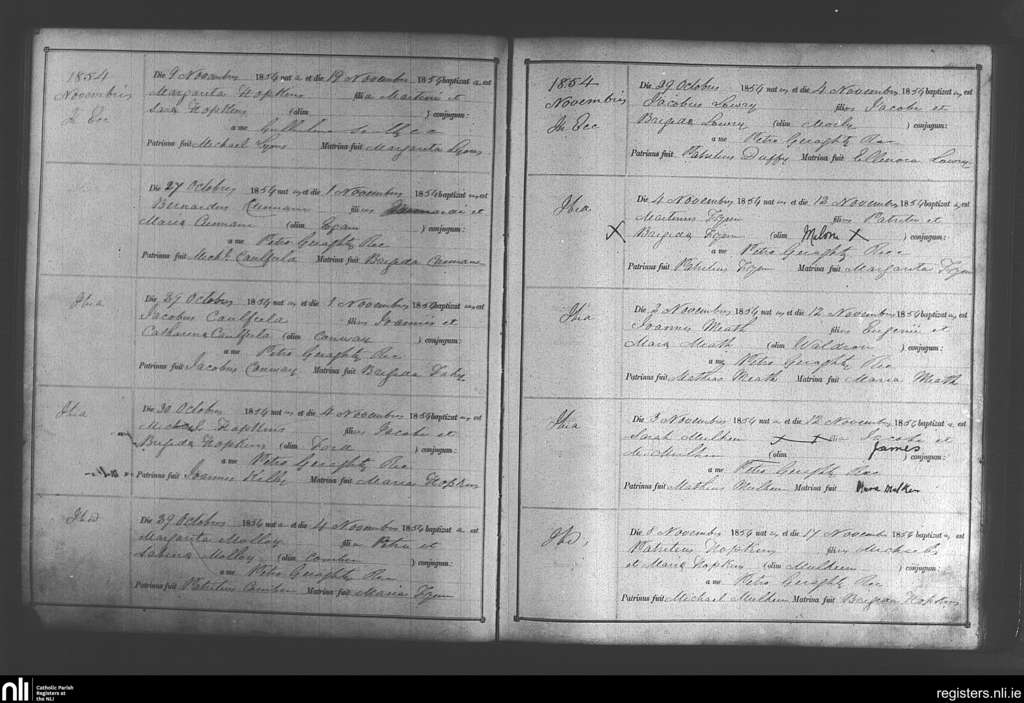 1854
Novembris
In Ecc
Die 9 Novembris 1854 nat a et die 19 Novembris 1854 baptizat a, est
Margarita Hopkins filia Martini et
Sara Hopkins (olim ) conjugum:
a me Gulielmo
Patrinus fuit Michael Lyons Matrina fuit Margarita Lyons
Die 27 Octobris 1854 nat us et die 1 Novembris 1854 baptizat us, est
Bernardus Cunnane filius et
Maria Cunnane (olim Egan ) conjugum:
a me Petro Geraghty Rec
Patrinus fuit Michl Caulfield Matrina fuit Brigida Cunnane
Ibid
Die 29 Octobris 1854 nat us et die 1 Novembris 1854 baptizat us, est
Jacobus Caulfield filius Joannis et
Catharina Caulfield (olim Conway ) conjugum:
a me Petro Geraghty Rec
Patrinus fuit Jacobus Conway Matrina fuit Brigida
Ibid
Die 30 Octobris 1854 nat us et die 4 Novembris 1854 baptizat us, est
Michael Hopkins filius Jacobi et
Brigida Hopkins (olim Ford ) conjugum:
a me Petro Geraghty Rec
Patrinus fuit Joannes Kelly Matrina fuit Maria Hopkins
Ibid
Die 29 Octobris 1854 nat a et die 4 Novembris 1854 baptizat a, est
Margarita Molloy filia Petri et
Sabina Molloy (olim ) conjugum:
a me Petro Geraghty Rec
Patrinus fuit Patritius Matrina fuit Maria
1854
Novembris
In Ecc
Die 29 Octobris 1854 nat us et die 4 Novembris 1854 baptizat us, est
Jacobus Lowry filius Jacobi et
Brigida Lowry (olim ) conjugum:
a me Petro Geraghty Rec
Patrinus fuit Patritius Duffy Matrina fuit Ellenora Lowry
Ibid
Die 4 Novembris 1854 nat us et die 12 Novembris 1854 baptizat us, est
Martinus filius Patritii et
X Brigida (olim Malone X ) conjugum:
a me Petro Geraghty Rec
Patrinus fuit Patritius Matrina fuit Margarita
Ibid
Die 3 Novembris 1854 nat us et die 12 Novembris 1854 baptizat us, est
Joannes Meath filius Eugenii et
Maria Meath (olim Waldron ) conjugum:
a me Petro Geraghty Rec
Patrinus fuit Mathias Meath Matrina fuit Maria Meath
Ibid
Die 3 Novembris 1854 nat a et die 12 Novembris 1854 baptizat a, est
Sarah Mulkeen X X filia Jacobi et
James
Mulkeen (olim ) conjugum:
a me Petro Geraghty Rec
Patrinus fuit Mathias Mulkeen Matrina fuit
Ibid,
Die 8 Novembris 1854 nat us et die 17 Novembris 1854 baptizat us, est
Patritius Hopkins filius Michaelis
et Maria Hopkins (olim Mulkeen ) conjugum:
a me Petro Geraghty Rec
Patrinus fuit Michael Mulkeen Matrina fuit Brigida Hopkins
nli
Catholic Parish
Registers at
the NLI
registers.nli.ie